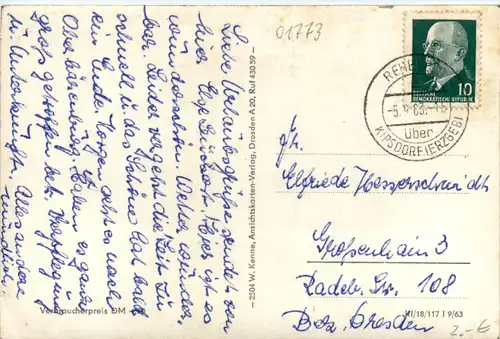 01773
Liebe Urlaubsgrüße sendet von
hier Ehep. Hier ist es
wunderschön. Wetter wunder-
bar. Leider vergeht die Zeit zu
schnell u. das Schöne hat bald
ein Ende. Morgen geht es nach
Oberbärenburg. Haben es ganz
groß getroffen betr. Verpflegung
u. Unterkunft. Alles andere
mündlich.
Verbraucherpreis DM
2504 W. Kenne, Ansichtskarten-Verlag, Dresden A 20, Ruf 430 59
10
DEUTSCHE
DEMOKRATISCHE REPUBLIK
über
KIPSDORF (ERZGEB)
Elfriede Hesserschmidt
Großenhain 3
Radeb. Str. 108
Bez. Dresden
III/18/117 I 9/63
2.- €